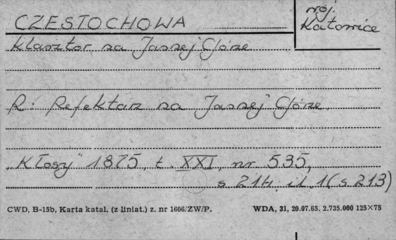 CZESTOCHOWA
woj. Katowice
Klasztor na Jasnej Górze
R: Refektarz na Jasnej Górze.
"Kłosy" 1875, t. XXI, nr 535,
s 214. il 1 (s 213)
CWD, B-15b, Karta katal. (z liniat.) z. nr 1606/ZW/P. WDA, 31, 20.07.65, 2.735.000 125×75